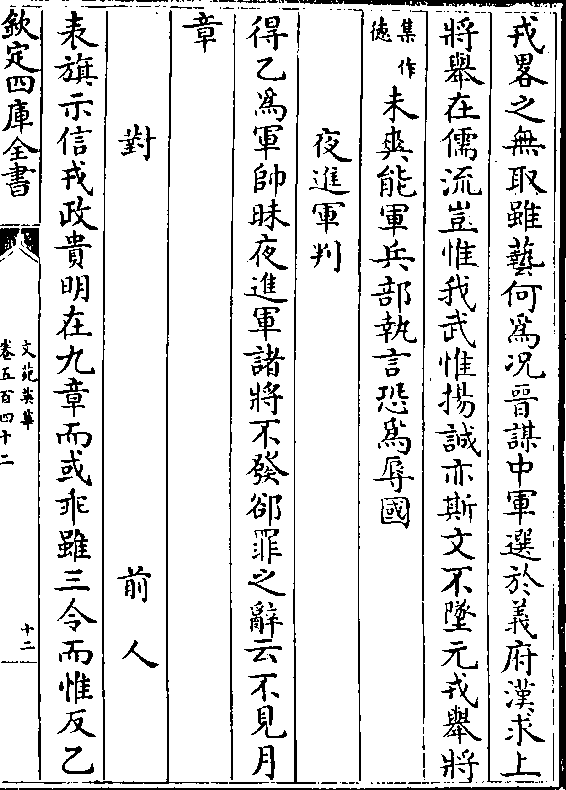 戎畧之無取雖藝何爲况晉謀中軍選於義府漢求上
將舉在儒流豈惟我武惟揚誠亦斯文不墜元戎舉將
集作德未爽能軍兵部執言恐爲辱國
夜進軍判
得乙爲軍帥昧夜進軍諸將不發郤罪之辭云不見月
章
對 前人
表旗示信戎政貴明在九章而或乖雖三令而惟反乙
欽定四庫全書
文苑英華
卷五百四十二
十二